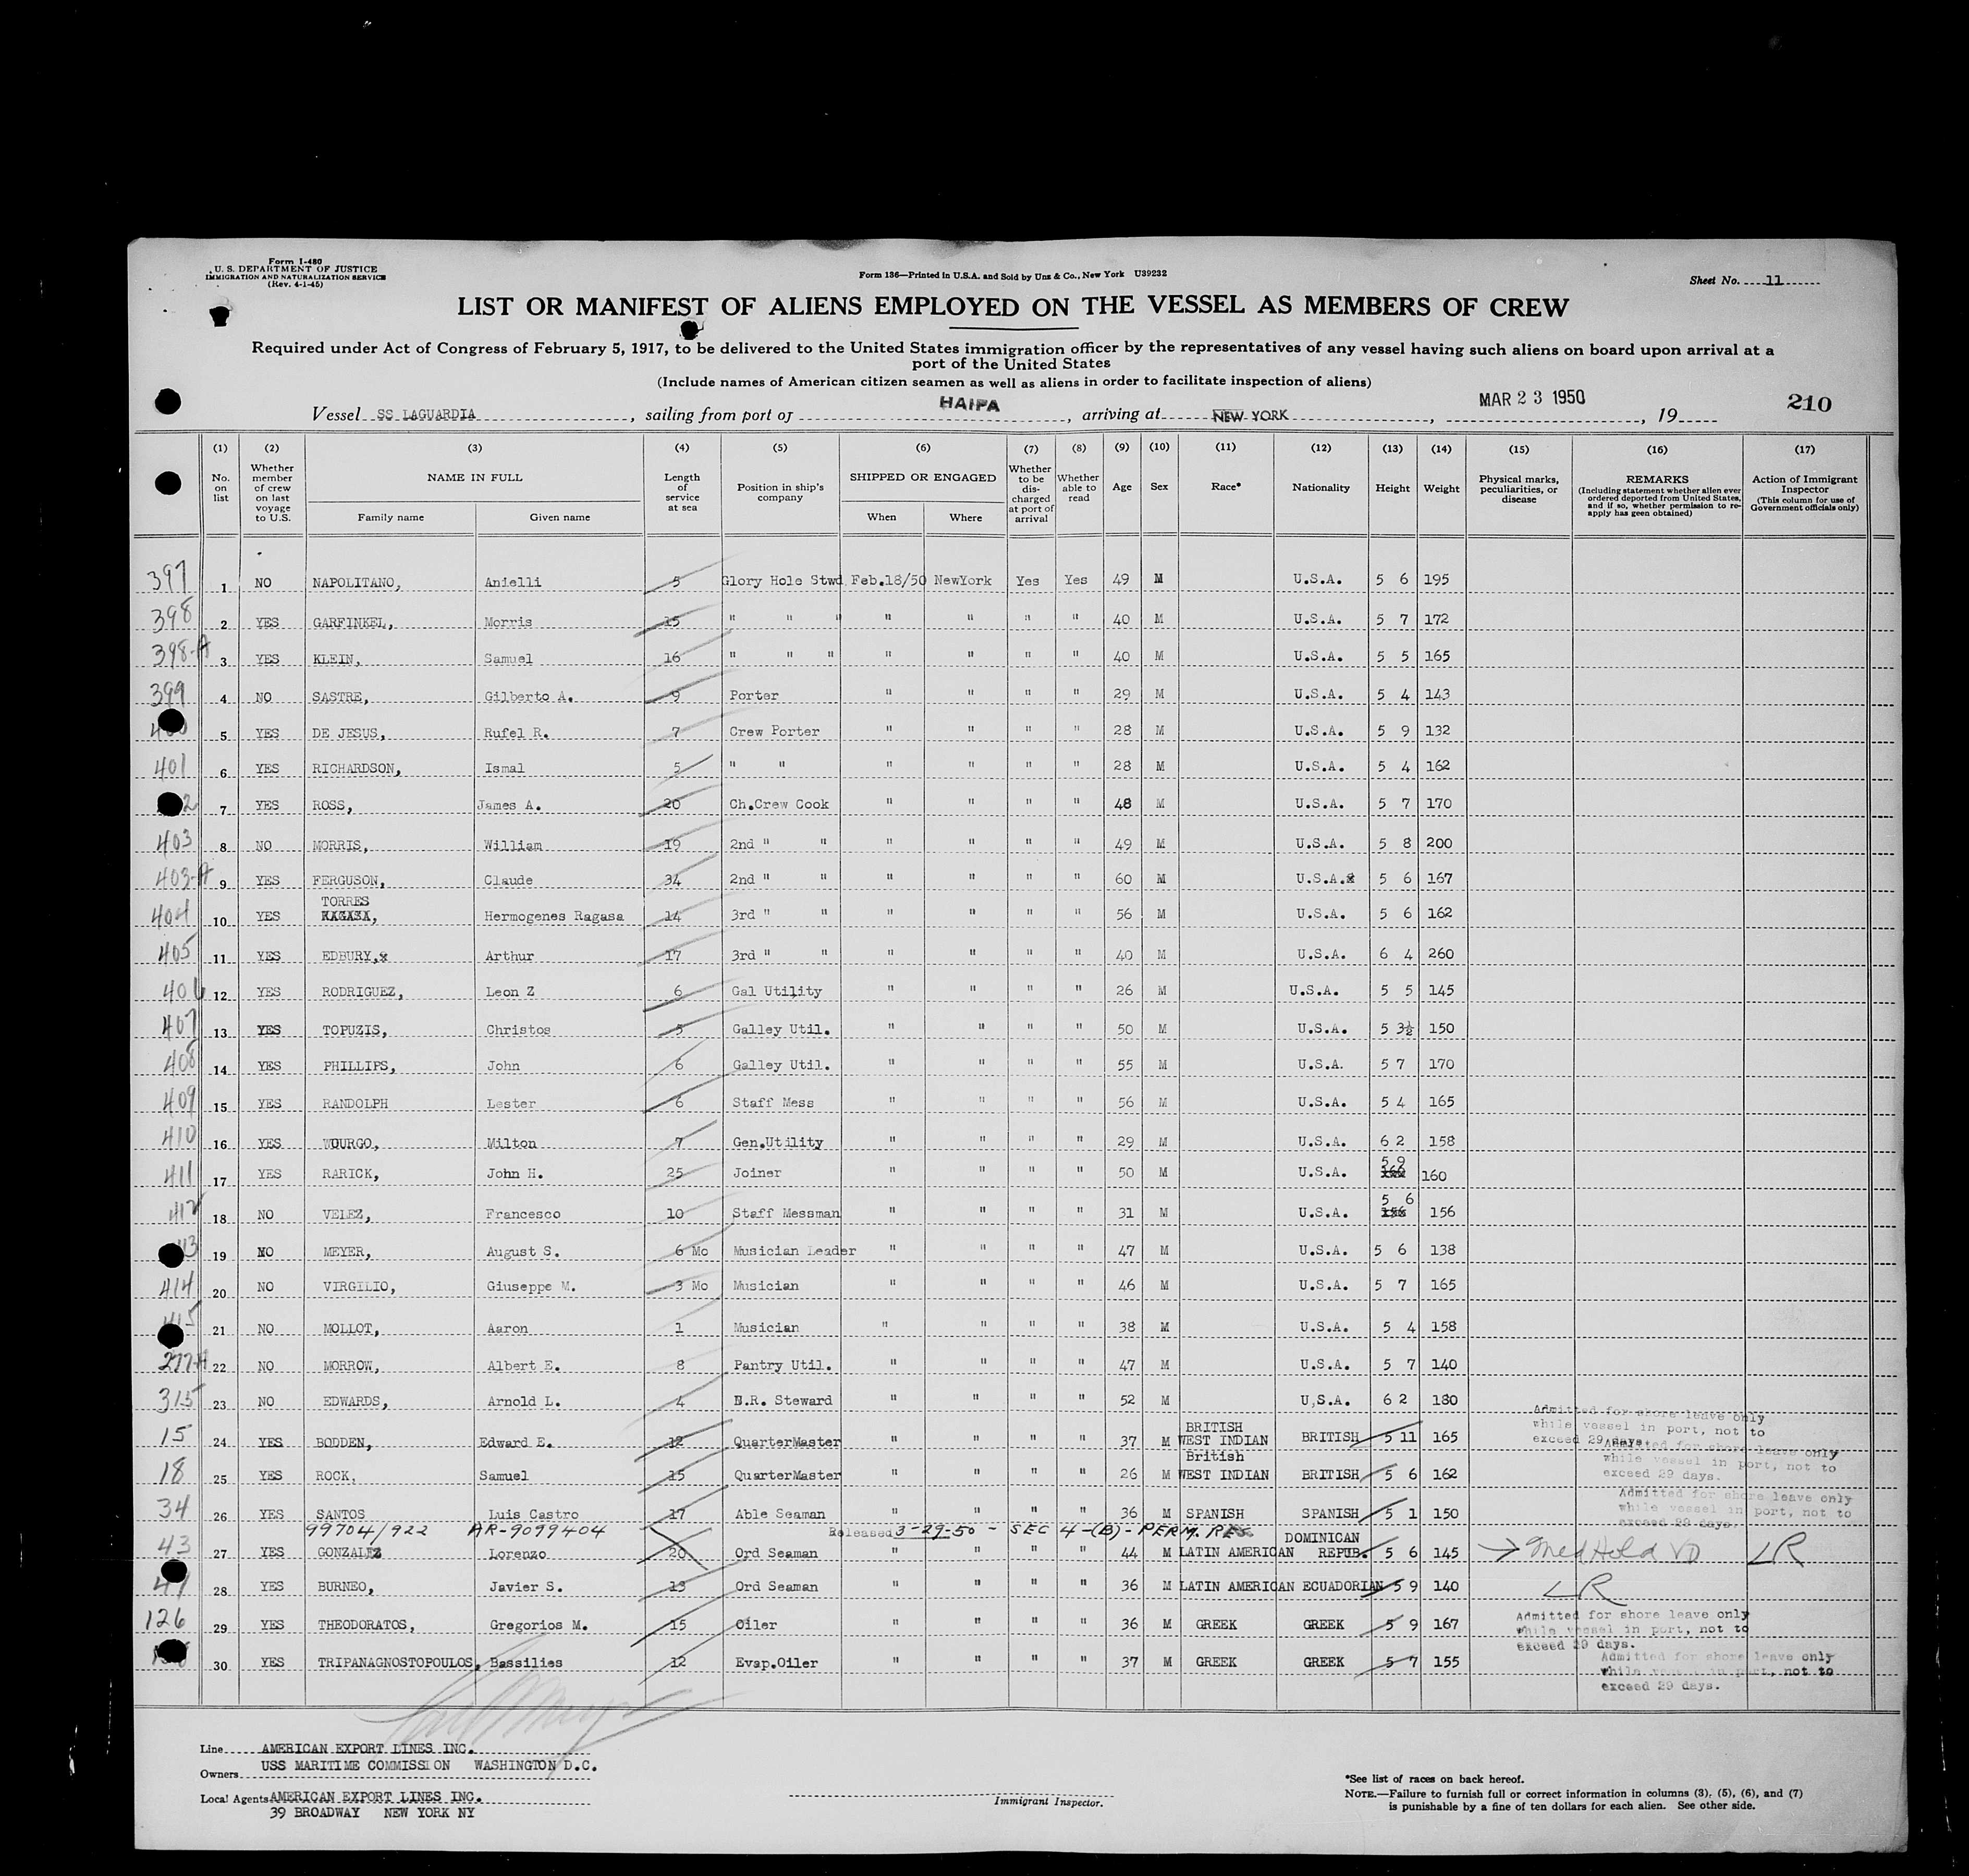 Form I-480
U. S. DEPARTMENT OF JUSTICE
IMMIGRATION AND NATURALIZATION SERVICE
(Rev. 4-1-45)
Form 136—Printed in U.S.A. and Sold by Unz & Co., New York U39232
Sheet No. 11
LIST OR MANIFEST OF ALIENS EMPLOYED ON THE VESSEL AS MEMBERS OF CREW
Required under Act of Congress of February 5, 1917, to be delivered to the United States immigration officer by the representatives of any vessel having such aliens on board upon arrival at a
port of the United States
(Include names of American citizen seamen as well as aliens in order to facilitate inspection of aliens)
Vessel SS LAGUARDIA, sailing from port of HAIFA, arriving at NEW YORK, MAR 23 1950, 19 210
(1) (2) (3) (4) (5) (6) (7) (8) (9) (10) (11) (12) (13) (14) (15) (16) (17)
No. on list
Whether member of crew on last voyage to U.S.
NAME IN FULL
Family name Given name
Length of service at sea
Position in ship's company
SHIPPED OR ENGAGED
When Where
Whether to be discharged at port of arrival
Whether able to read
Age Sex Race* Nationality Height Weight
Physical marks, peculiarities, or disease
REMARKS
(Including statement whether alien ever ordered deported from United States, and if so, whether permission to re-apply has geen obtained)
Action of Immigrant Inspector
(This column for use of Government officials only)
397 1 NO NAPOLITANO, Anielli 5 Glory Hole Stwd Feb.18/50 NewYork Yes Yes 49 M U.S.A. 5 6 195
398 2 YES GARFINKEL, Morris 15 " " " " " " " 40 M U.S.A. 5 7 172
398-A 3 YES KLEIN, Samuel 16 " " " " " " " 40 M U.S.A. 5 5 165
399 4 NO SASTRE, Gilberto A. 9 Porter " " " " 29 M U.S.A. 5 4 143
5 YES DE JESUS, Rufel R. 7 Crew Porter " " " " 28 M U.S.A. 5 9 132
401 6 YES RICHARDSON, Ismal 5 " " " " " " 28 M U.S.A. 5 4 162
7 YES ROSS, James A. 20 Ch.Crew Cook " " " " 48 M U.S.A. 5 7 170
403 8 NO MORRIS, William 19 2nd " " " " " " 49 M U.S.A. 5 8 200
403-A 9 YES FERGUSON, Claude 34 2nd " " " " " " 60 M U.S.A. 5 6 167
TORRES
404 10 YES RAGASA, Hermogenes Ragasa 14 3rd " " " " " " 56 M U.S.A. 5 6 162
405 11 YES EDBURY, Arthur 17 3rd " " " " " " 40 M U.S.A. 6 4 260
406 12 YES RODRIGUEZ, Leon Z 6 Gal Utility " " " " 26 M U.S.A. 5 5 145
407 13 YES TOPUZIS, Christos 5 Galley Util. " " " " 50 M U.S.A. 5 3½ 150
408 14 YES PHILLIPS, John 6 Galley Util. " " " " 55 M U.S.A. 5 7 170
409 15 YES RANDOLPH Lester 6 Staff Mess " " " " 56 M U.S.A. 5 4 165
410 16 YES WOURGO, Milton 7 Gen.Utility " " " " 29 M U.S.A. 6 2 158
411 17 YES RARICK, John H. 25 Joiner " " " " 50 M U.S.A. 5 9 160
412 18 NO VELEZ, Francesco 10 Staff Messman " " " " 31 M U.S.A. 5 6 156
19 NO MEYER, August S. 6 Mo Musician Leader " " " " 47 M U.S.A. 5 6 138
414 20 NO VIRGILIO, Giuseppe M. 3 Mo Musician " " " " 46 M U.S.A. 5 7 165
415 21 NO MOLLOT, Aaron 1 Musician " " " " 38 M U.S.A. 5 4 158
277-A 22 NO MORROW, Albert E. 8 Pantry Util. " " " " 47 M U.S.A. 5 7 140
315 23 NO EDWARDS, Arnold L. 4 N.R. Steward " " " " 52 M U.S.A. 6 2 180
15 24 YES BODDEN, Edward E. 12 QuarterMaster " " " " 37 M BRITISH WEST INDIAN BRITISH 5 11 165 Admitted for shore leave only while vessel in port, not to exceed 29 days.
18 25 YES ROCK, Samuel 15 QuarterMaster " " " " 26 M British WEST INDIAN BRITISH 5 6 162 Admitted for shore leave only while vessel in port, not to exceed 29 days.
34 26 YES SANTOS Luis Castro 17 Able Seaman " " " " 36 M SPANISH SPANISH 5 1 150 Admitted for shore leave only while vessel in port, not to exceed 29 days.
99704/922 AR-9099404 Released 3-29-50 - SEC 4-(B)- PERM. RES.
43 27 YES GONZALEZ Lorenzo 20 Ord Seaman " " " " 44 M LATIN AMERICAN DOMINICAN REPUB. 5 6 145 Med Hold VD LR
28 YES BURNEO, Javier S. 13 Ord Seaman " " " " 36 M LATIN AMERICAN ECUADORIAN 5 9 140 LR
126 29 YES THEODORATOS, Gregorios M. 15 Oiler " " " " 36 M GREEK GREEK 5 9 167 Admitted for shore leave only while vessel in port, not to exceed 29 days.
30 YES TRIPANAGNOSTOPOULOS, Bassilies 12 Evap.Oiler " " " " 37 M GREEK GREEK 5 7 155 Admitted for shore leave only while vessel in port, not to exceed 29 days.
Line AMERICAN EXPORT LINES INC.
Owners USS MARITIME COMMISSION WASHINGTON D.C.
Local Agents AMERICAN EXPORT LINES INC.
39 BROADWAY NEW YORK NY
Immigrant Inspector.
*See list of races on back hereof.
NOTE.—Failure to furnish full or correct information in columns (3), (5), (6), and (7)
is punishable by a fine of ten dollars for each alien. See other side.